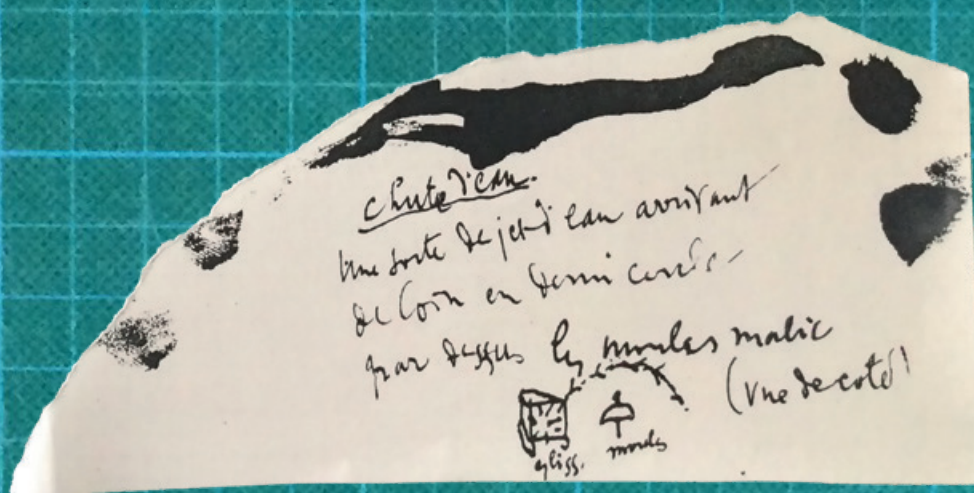 Chute d'eau.
Une sorte de jet d'eau arrivant
de loin en demi cercle
par dessus les moules malic
(vue de coté)
gliss. moules